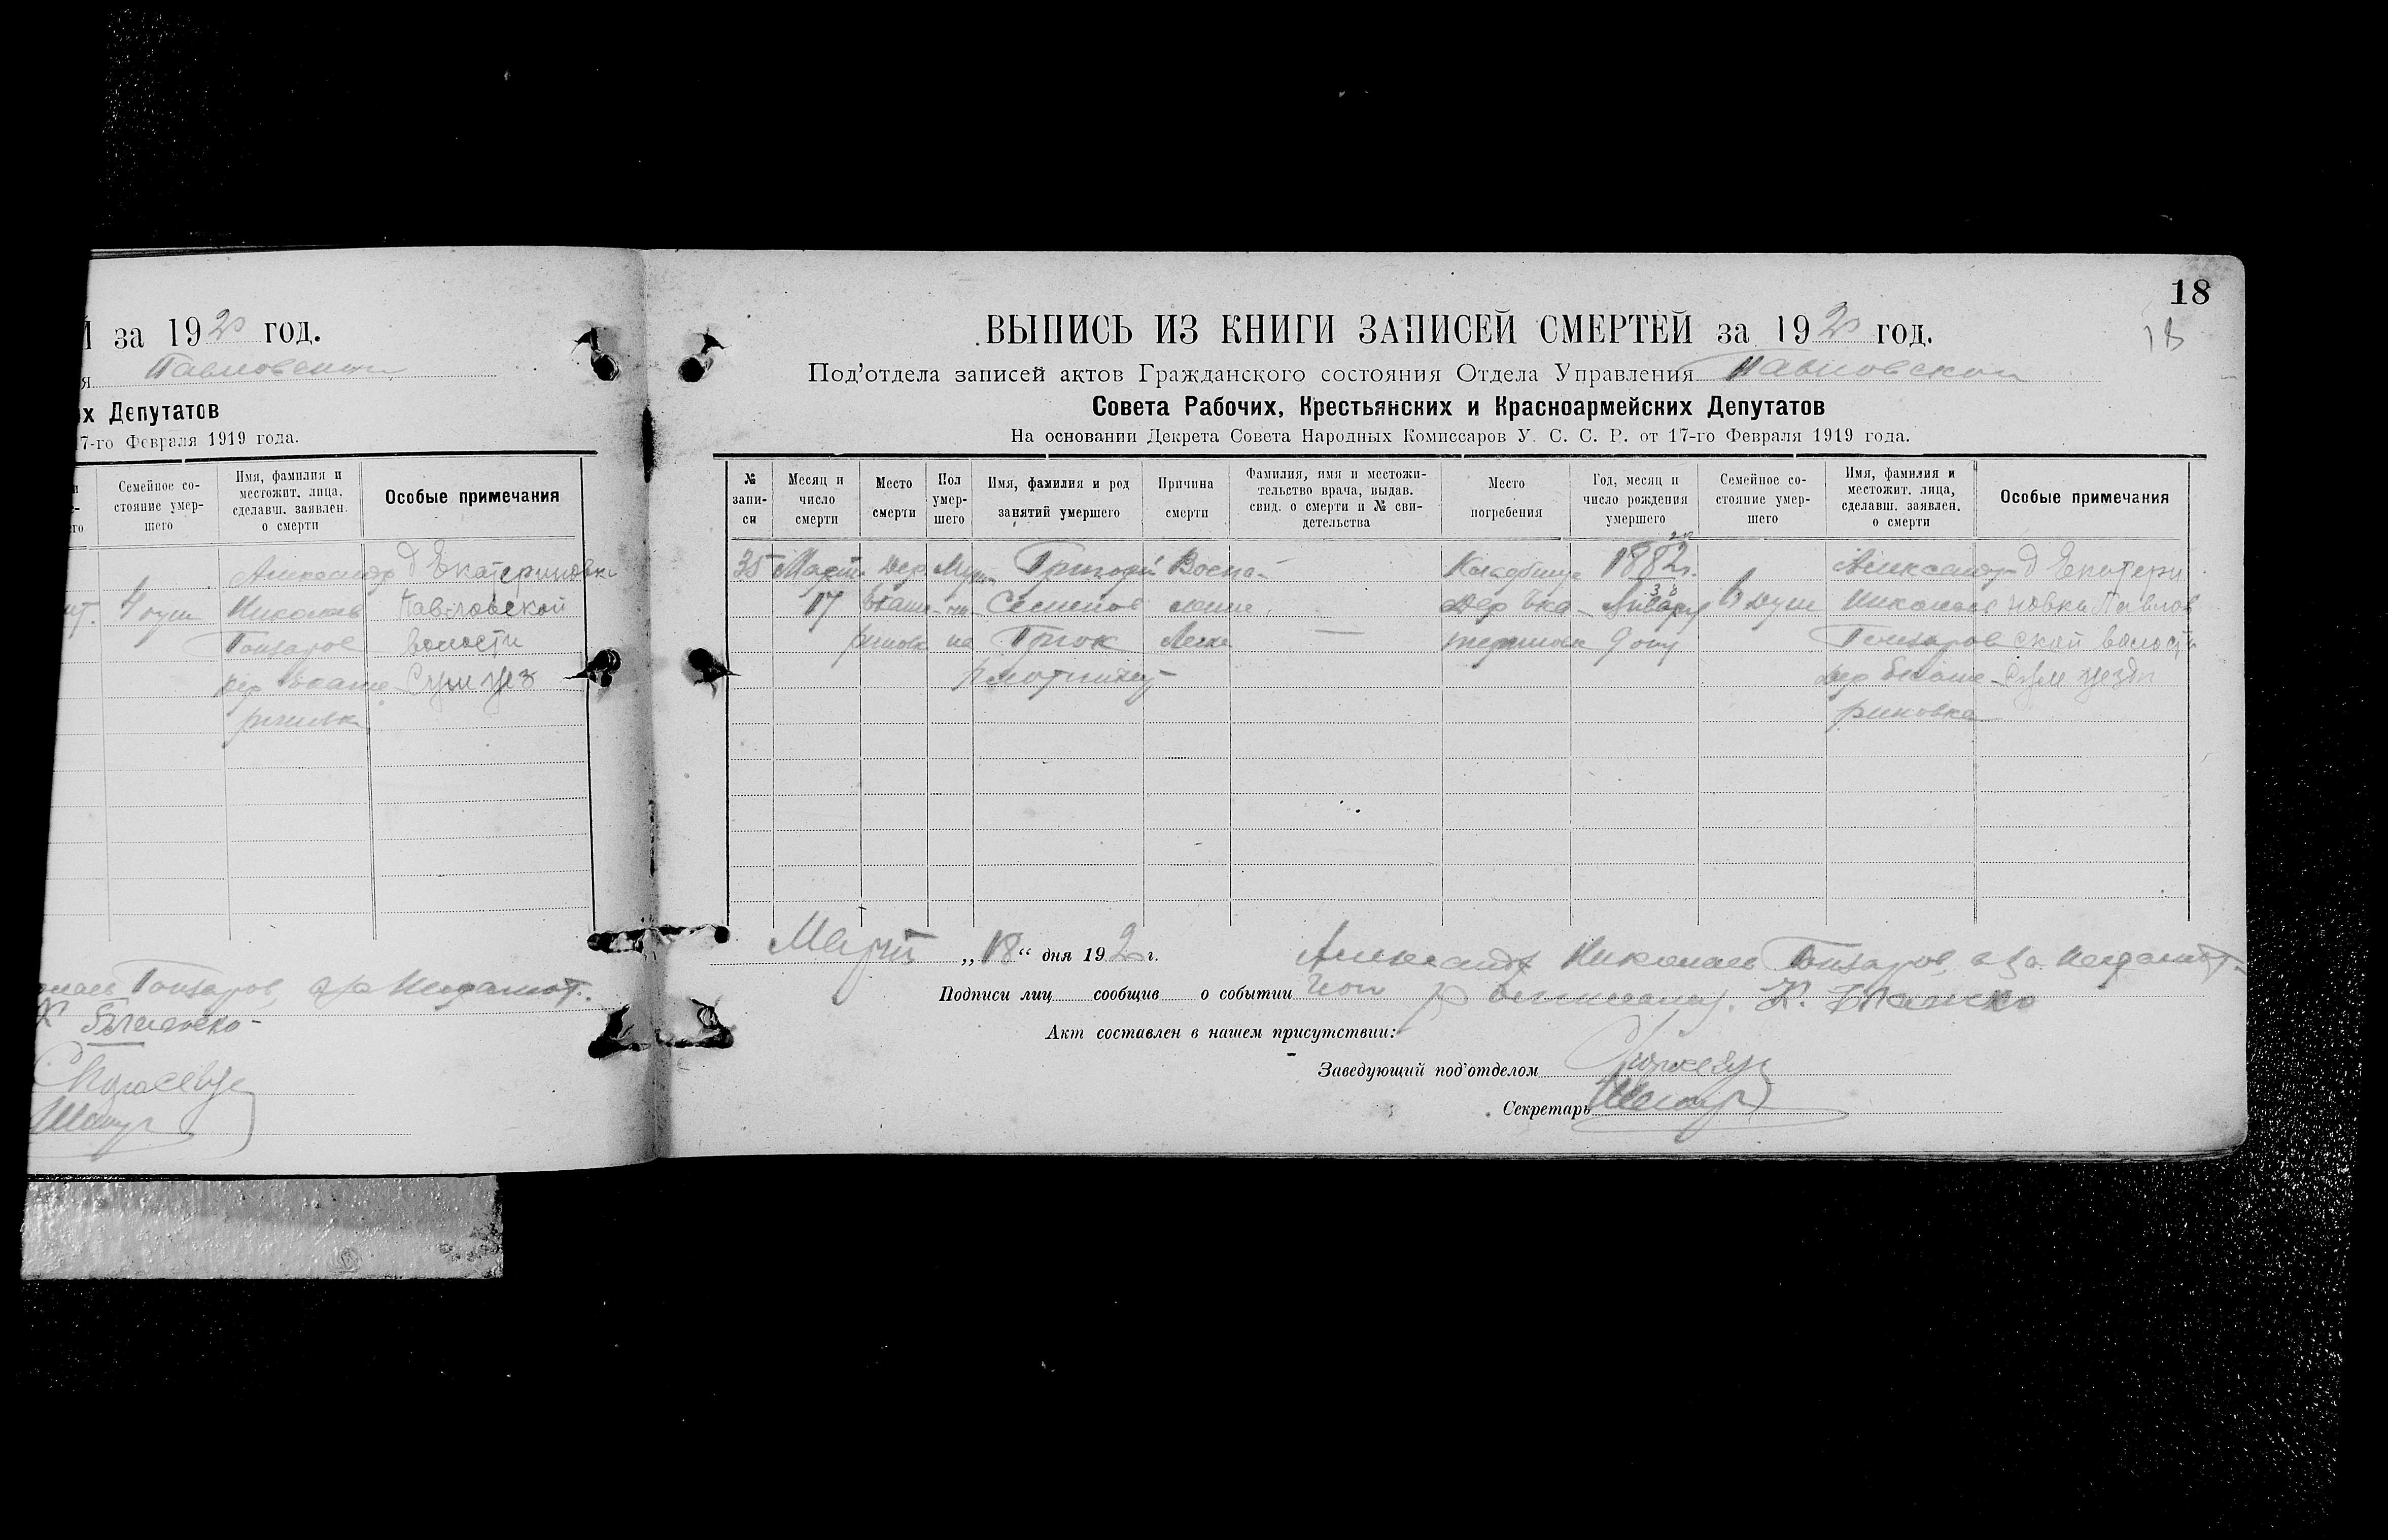 й за 1920 год.
я Павловской
их Депутатов
17-го Февраля 1919 года.
Семейное со-
стояние умер-
шего
Имя, фамилия и
местожит. лица,
сделавш. заявлен.
о смерти
Особые примечания
4 душ
Александр
Николаев
Гончаров
дер Екате-
риновк
д Екатериновки
Павловской
волости
Сум уез
Гончаров, а за неграмот.
18
18
ВЫПИСЬ ИЗ КНИГИ ЗАПИСЕЙ СМЕРТЕЙ за 1920 год.
Под'отдела записей актов Гражданского состояния Отдела Управления Павловской
Совета Рабочих, Крестьянских и Красноармейских Депутатов
На основании Декрета Совета Народных Комиссаров У. С. С. Р. от 17-го Февраля 1919 года.
№
запи-
си
Месяц и
число
смерти
Место
смерти
Пол
умер-
шего
Имя, фамилия и род
занятий умершего
Причина
смерти
Фамилия, имя и местожи-
тельство врача, выдав.
свид. о смерти и № сви-
детельства
Место
погребения
Год, месяц и
число рождения
умершего
Семейное со-
стояние умер-
шего
Имя, фамилия и
местожит. лица,
сделавш. заявлен.
о смерти
Особые примечания
35
Март
17
Дер
Екате-
риновк
Муж-
чи-
на
Григорий
Семенов
Воспа-
ление
Легке
Кладбище
дер Ека-
териновк
1882 г.
Января
6 душ
Александр
Николаев
Гончаров
дер Екате-
риновка
д Екатери
новки Павлов
ской волости
Сум уезда
Март „18“ дня 1920 г.
Александр Николаев Гончаров, а за неграмот-
Подписи лиц сообщив о событии
Акт составлен в нашем присутствии:
Заведующий под'отделом
Секретарь